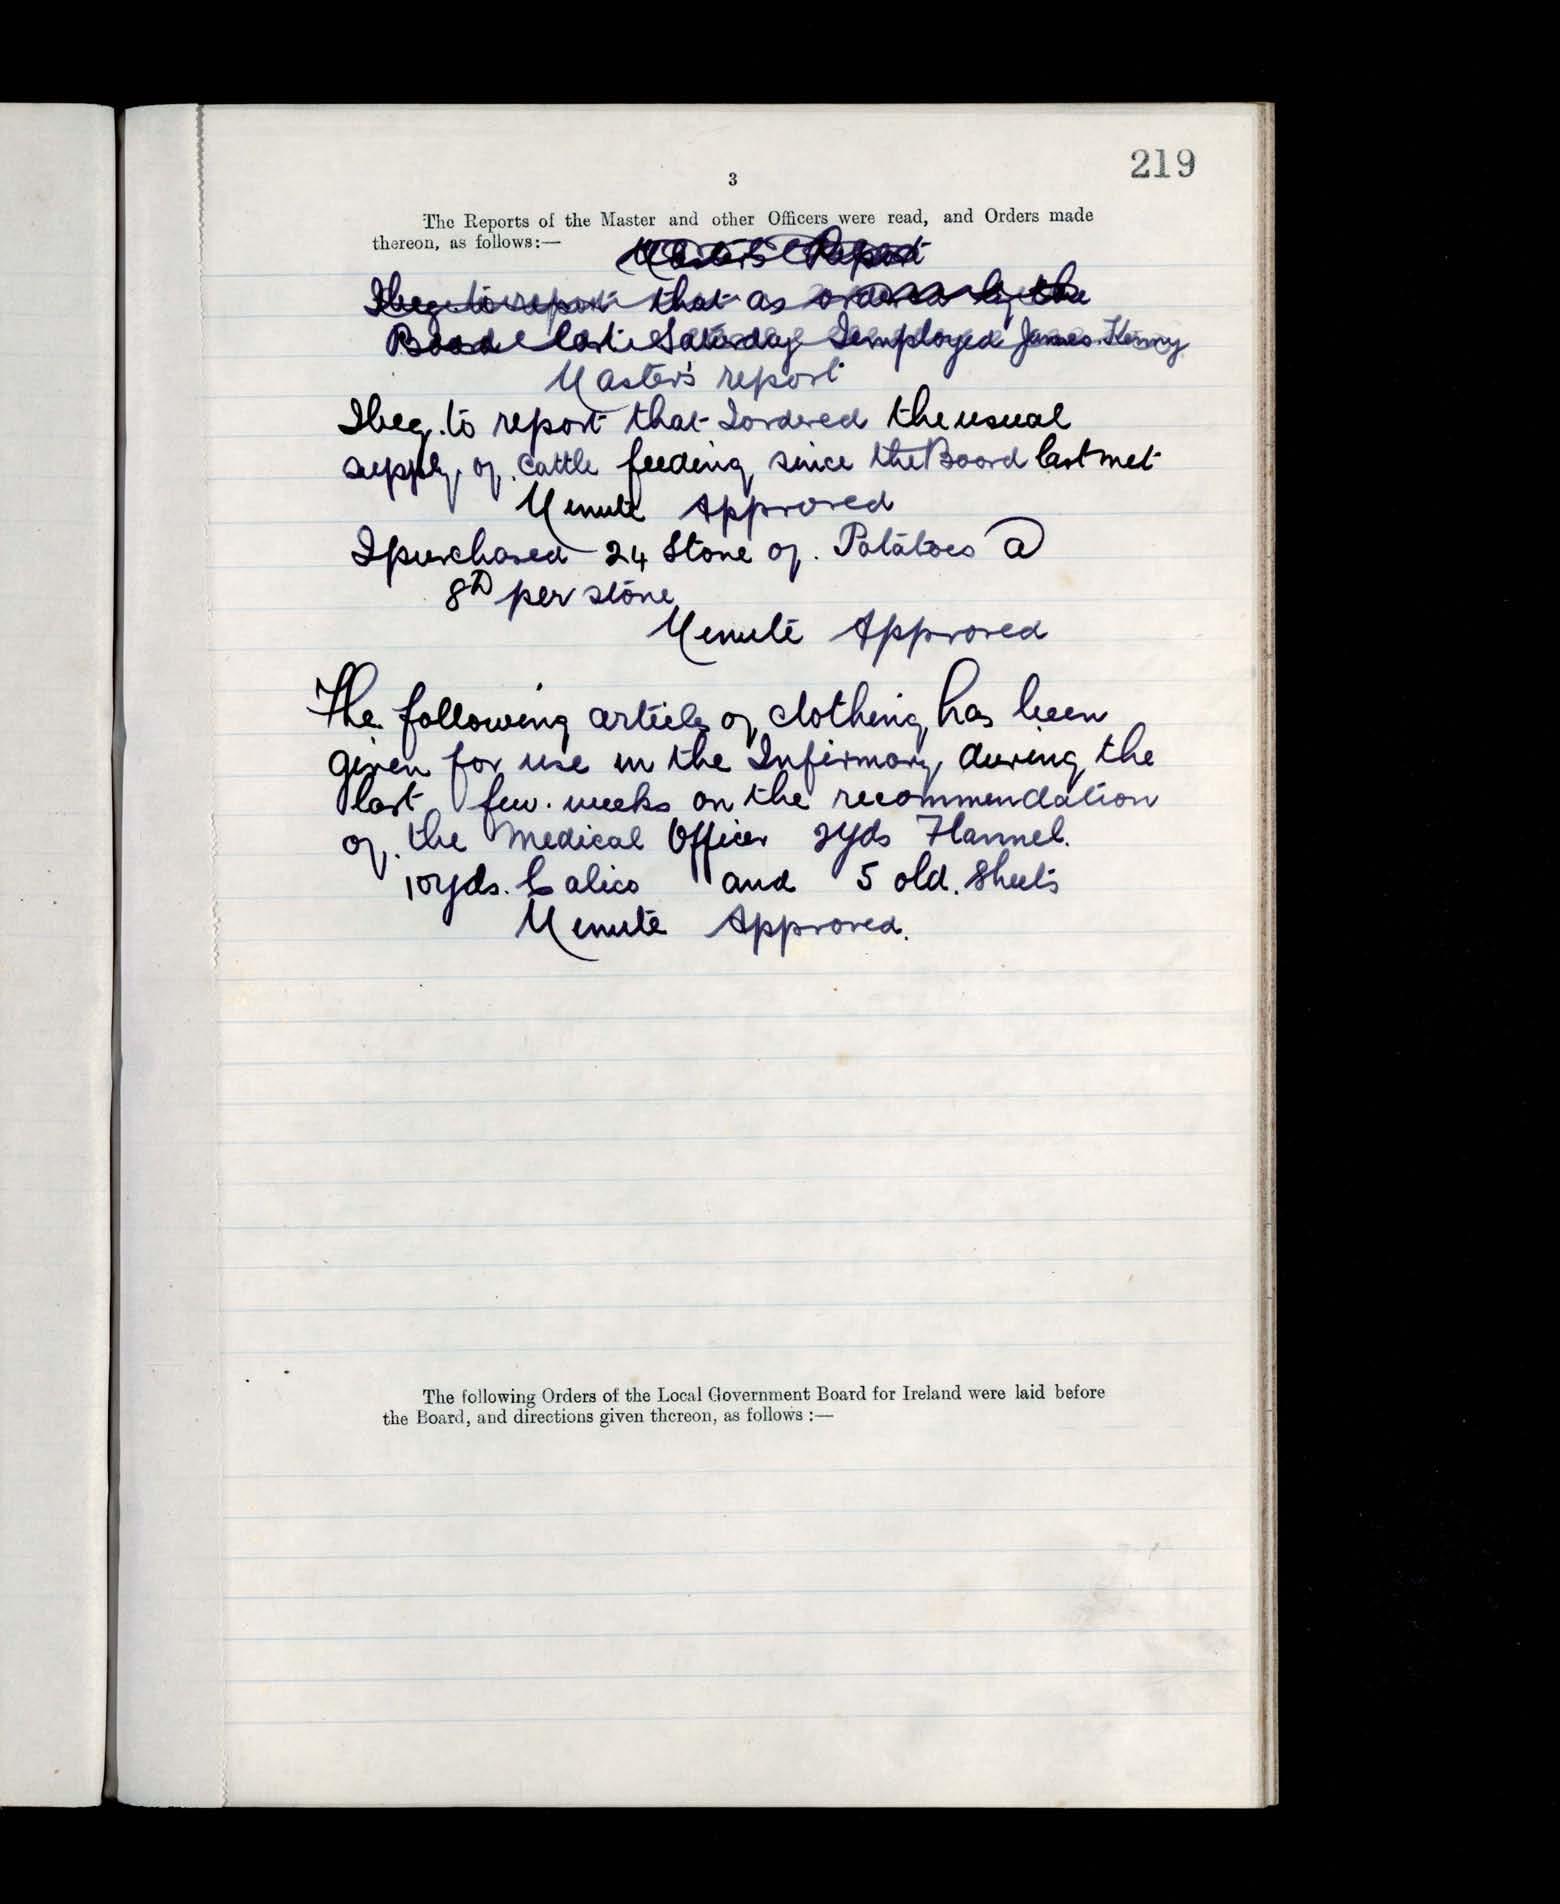 219
3
The Reports of the Master and other Officers were read, and Orders made
thereon, as follows:—
Master's Report
I beg to report that as ordered by the
Board last Saturday I employed James Kenny
Master's report
I beg to report that I ordered the usual
supply of cattle feeding since the Board last met
Minute Approved
I purchased 24 Stone of Potatoes @
8D per stone
Minute Approved
The following articles of clothing has been
given for use in the Infirmary during the
last few weeks on the recommendation
of the Medical Officer 2yds Flannel.
10yds. Calico and 5 old. Sheets
Minute Approved.
The following Orders of the Local Government Board for Ireland were laid before
the Board, and directions given thereon, as follows :—